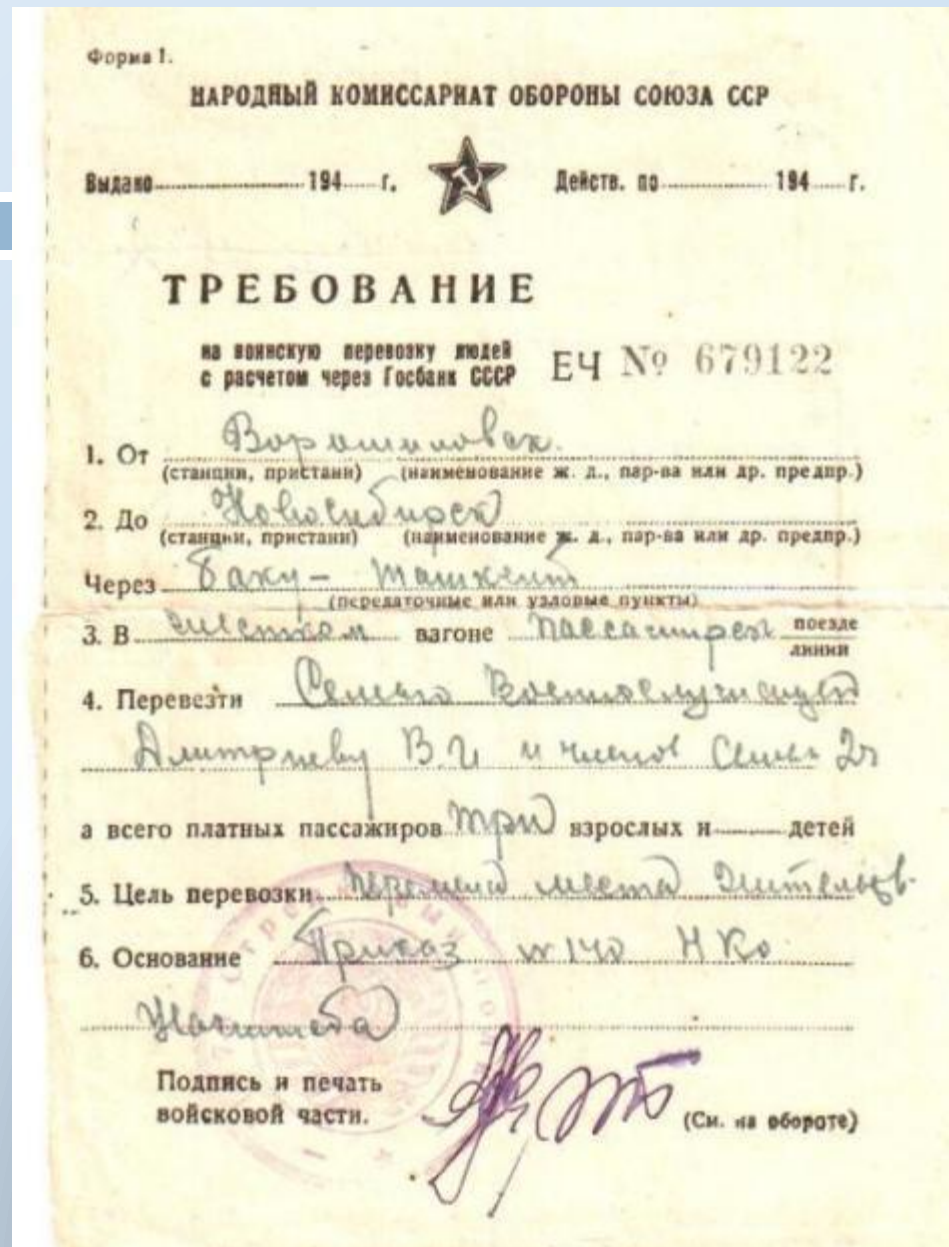 Форма 1.
НАРОДНЫЙ КОМИССАРИАТ ОБОРОНЫ СОЮЗА ССР
Выдано 194 г. Действ. по 194 г.
ТРЕБОВАНИЕ
на воинскую перевозку людей
с расчетом через Госбанк СССР ЕЧ № 679122
1. От Ворошиловск.
(станции, пристани) (наименование ж. д., пар-ва или др. предпр.)
2. До Новосибирск
(станции, пристани) (наименование ж. д., пар-ва или др. предпр.)
Через Баку - Ташкент
(передаточные или узловые пункты)
3. В жестком вагоне пассажирск поезде
линии
4. Перевезти Семью Военнослужащего
Дмитриеву В.И и членов Семьи 2ч
а всего платных пассажиров три взрослых и детей
5. Цель перевозки перемена места жительств.
6. Основание Приказ № 140 НКО
Подпись и печать
войсковой части.
(См. на обороте)